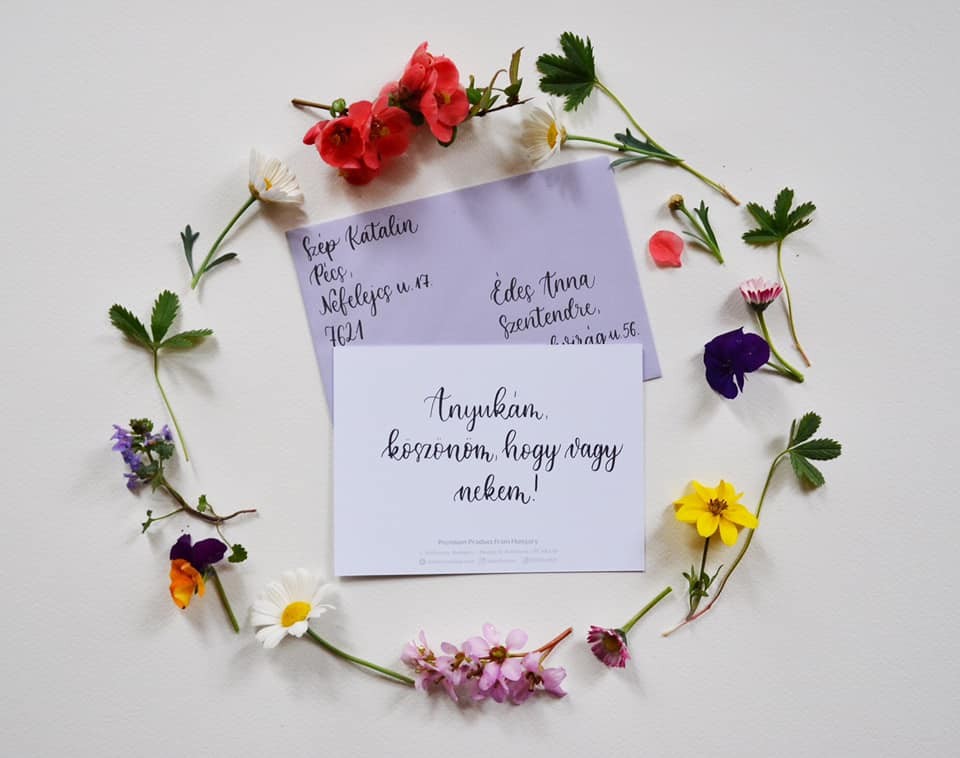 Szép Katalin
Pécs,
Nefelejcs u. 17.
7621
Édes Anna
Szentendre,
u. 56.
Anyukám,
köszönöm, hogy vagy
nekem!
Premium Product from Hungary